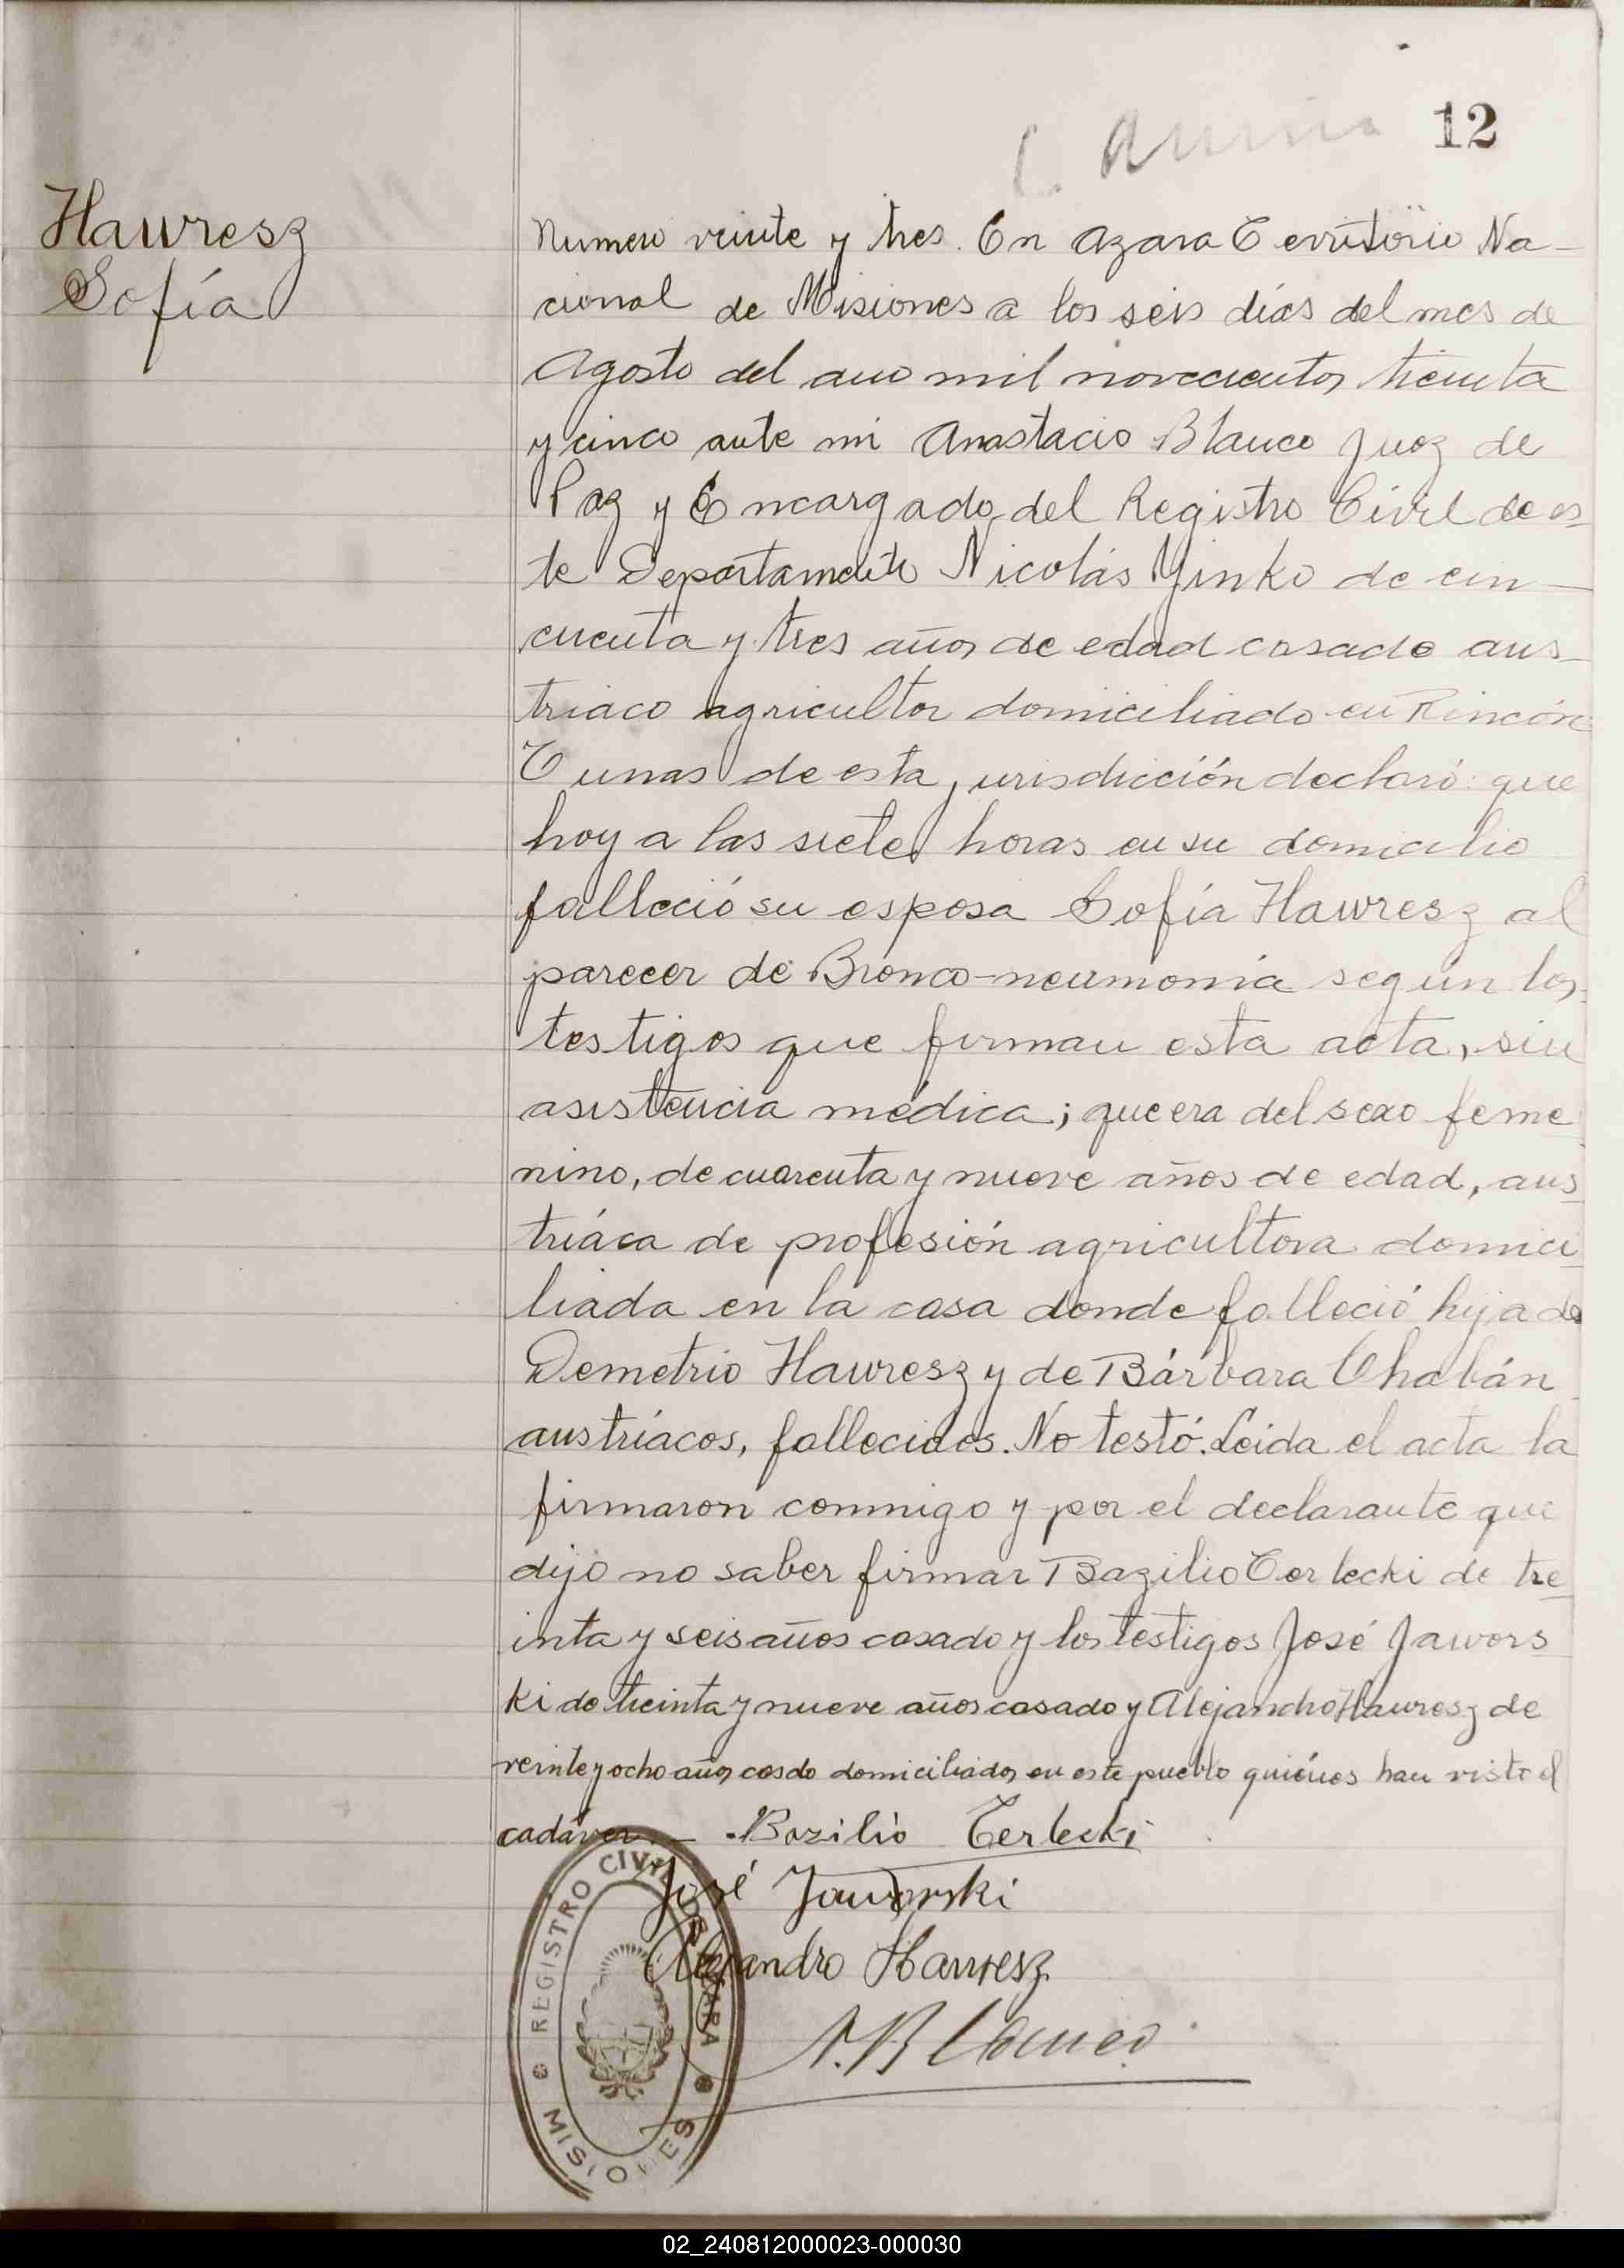 12
Hawresz
Sofía
Numero veinte y tres. En Azara Territorio Na-
cional de Misiones a los seis días del mes de
Agosto del ano mil novecientos treinta
y cinco ante mi Anastacio Blanco Juez de
Paz y Encargado del Registro Civil de es
te Departamento Nicolás Yinko de cin-
cuenta y tres años de edad casado aus
triaco agricultor domiciliado en Rincón
Tunas de esta jurisdicción declaró: que
hoy a las siete horas en su domicilio
falleció su esposa Sofía Hawresz al
parecer de Bronco-neumonia segun los
testigos que firman esta acta, sin
asistencia médica; que era del sexo feme
nino, de cuarenta y nueve años de edad, aus
triáca de profesión agricultora domici
liada en la casa donde falleció hija de
Demetrio Hawresz y de Bárbara Chabán
austríacos, fallecidos. No testó. Leida el acta la
firmaron conmigo y por el declarante que
dijo no saber firmar Bazilio Terlecki de tre
inta y seis años casado y los testigos José Jawors
ki de treinta y nueve años casado y Alejandro Hawresz de
veinte y ocho años casdo domiciliados en este pueblo quiénes han visto el
cadáver.— Bazilio Terlecki
José Jaworski
Alejandro Hawresz
A. Blanco
REGISTRO CIVIL DE AZARA
MISIONES
02_240812000023-000030